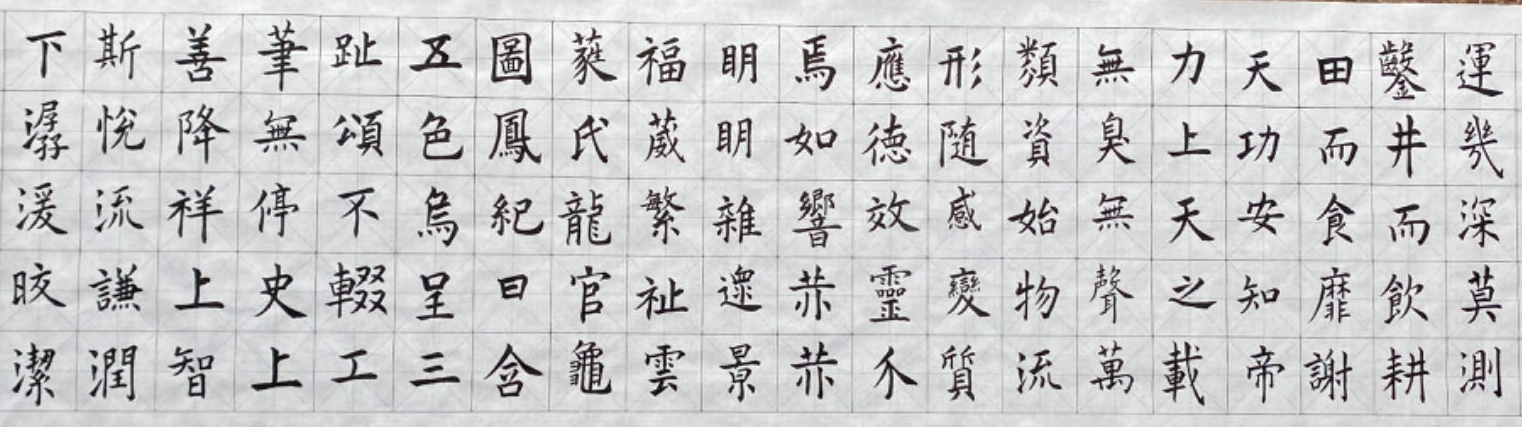 運幾深莫測
鑿井而飲耕
田而食靡謝
天功安知帝
力上天之載
無臭無聲萬
類資始物流
形隨感變質
應德效靈介
焉如響赫赫
明明雜遝景
福葳繁祉雲
蕤氏龍官龜
圖鳳紀日含
五色烏呈三
趾頌不輟工
筆無停史上
善降祥上智
斯悅流謙潤
下潺湲晈潔